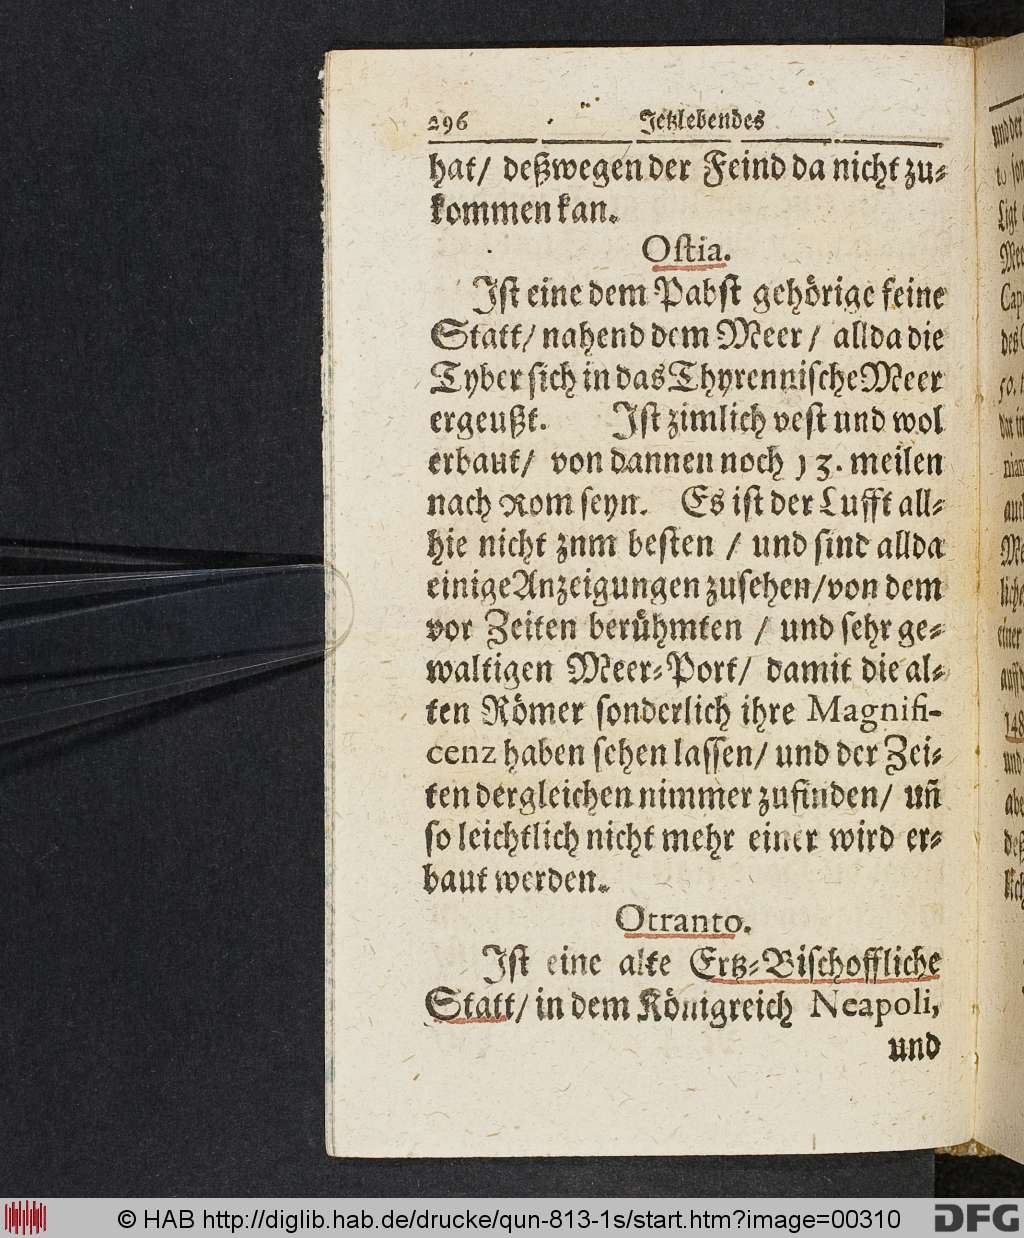 296 Jetzlebendes
hat/ deßwegen der Feind da nicht zu-
kommen kan.
Ostia.
Ist eine dem Pabst gehörige feine
Statt/ nahend dem Meer / allda die
Tyber sich in das Thyrennische Meer
ergeußt. Ist zimlich vest und wol
erbaut/ von dannen noch 13. meilen
nach Rom seyn. Es ist der Lufft all-
hie nicht znm besten / und sind allda
einige Anzeigungen zusehen/ von dem
vor Zeiten berühmten / und sehr ge-
waltigen Meer-Port/ damit die al-
ten Römer sonderlich ihre Magnifi-
cenz haben sehen lassen/ und der Zei-
ten dergleichen nimmer zufinden/ uñ
so leichtlich nicht mehr einer wird er-
baut werden.
Otranto.
Ist eine alte Ertz-Bischoffliche
Statt/ in dem Königreich Neapoli,
und
© HAB http://diglib.hab.de/drucke/qun-813-1s/start.htm?image=00310
DFG